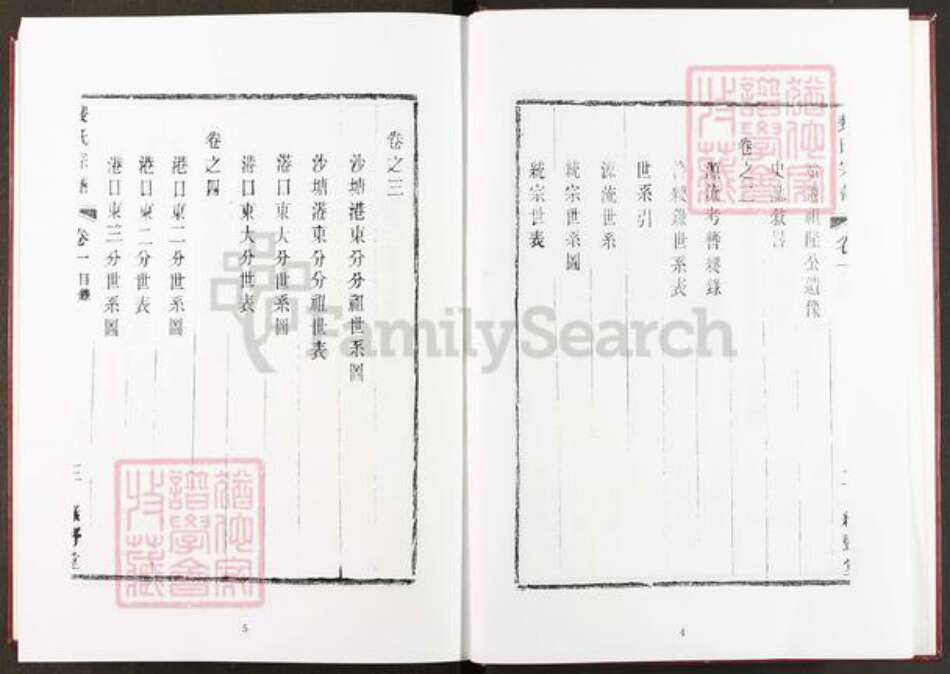 始遷祖隆公遺像
卷之二
源流考暫裰錄
世系引
源流世系
統宗世系圖
統宗世表
4
卷之三
沙塘港東分分祖世系圖
沙塘港東分分祖世表
港口東大分世系圖
港口東大分世表
卷之四
港口東二分世系圖
港口東二分世表
港口東三分世系圖
卷一 目錄
三
5
猶他家譜學會收藏
猶他家譜學會收藏
FamilySearch